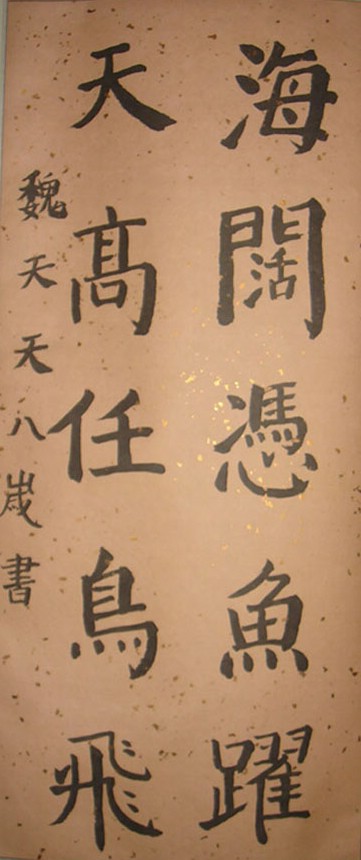 海闊憑魚躍
天高任鳥飛
魏天天八歲書